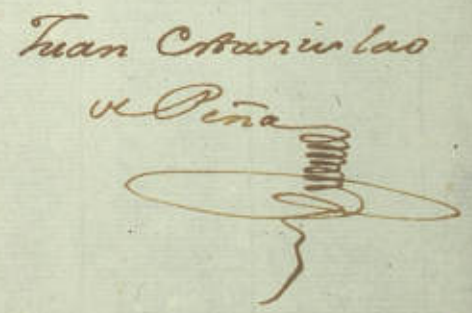 Juan Estanislao
de Piña